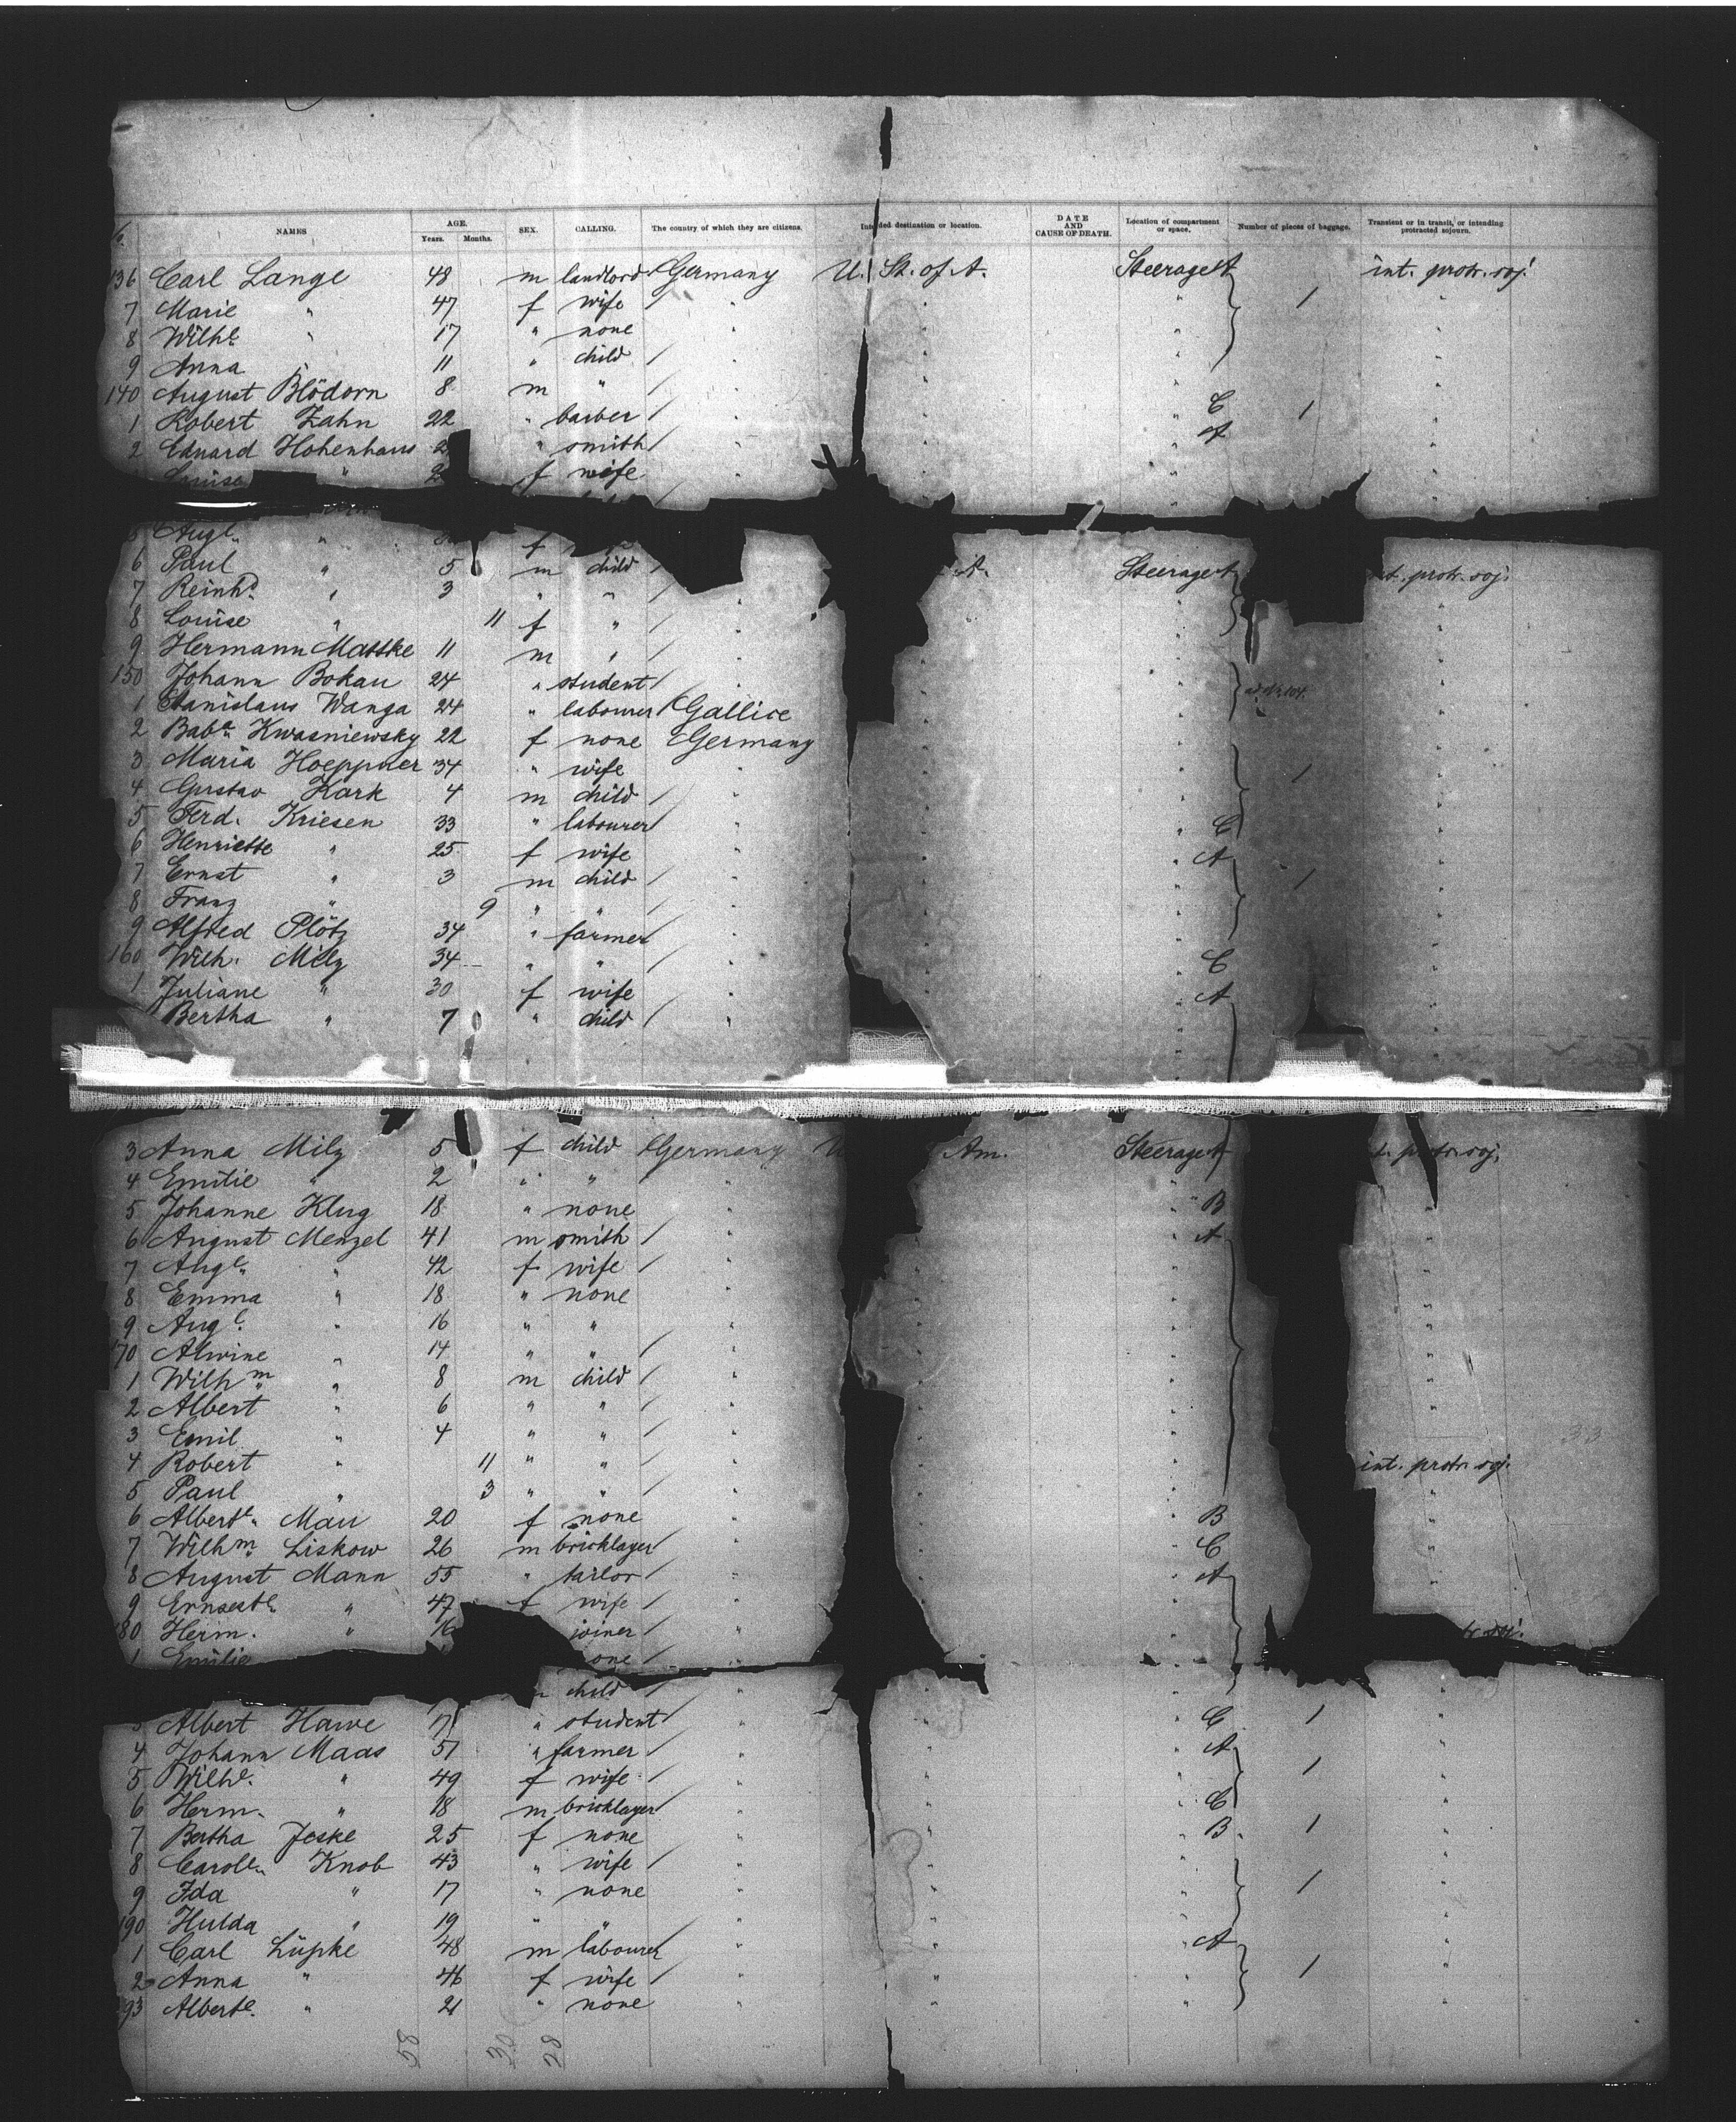 NAMES AGE. Years. Months. SEX. CALLING. The country of which they are citizens. Intended destination or location. DATE AND CAUSE OF DEATH. Location of compartment or space. Number of pieces of baggage. Transient or in transit, or intending protracted sojourn.
136 Carl Lange 48 m landlord Germany U. St. of A. Steerage A int. protr. soj.
7 Marie " 47 f wife / " " " 1 "
8 Wilhe. " 17 " none " " " "
9 Anna " 11 " child / " " " "
140 August Blödorn 8 m " / " " " "
1 Robert Zahn 22 " barber / " " " C 1 "
2 Eduard Hohenhaus " smith / " " " A "
Louise " f wife " " " "
Augte. " f
6 Paul " 5 m child / A. Steerage A protr. soj.
7 Reinhd. " 3 " " / " " "
8 Louise " 11 f " / " " "
9 Hermann Mattke 11 m " / " " "
150 Johann Bokau 24 " student / " " "
1 Stanislaus Wanga 24 " labourer / Gallice " "
2 Baba. Kwasniewsky 22 f none Germany " "
3 Maria Hoeppner 34 " wife " " " 1 "
4 Gustav Kark 4 m child / " " " "
5 Ferd. Kriesen 33 " labourer / " " " C "
6 Henriette " 25 f wife " " " A "
7 Ernst " 3 m child / " " " 1 "
8 Franz " 9 " " / " " " "
9 Alfred Plötz 34 " farmer / " " " "
160 Wilh. Milz 34 " " / " " " C "
1 Juliane " 30 f wife " " " A "
Bertha " 7 " child / " " " "
3 Anna Milz 5 f child Germany U Am. Steerage A protr. soj.
4 Emilie " 2 " " " " " "
5 Johanne Klug 18 " none " " " B "
6 August Menzel 41 m smith / " " " A "
7 Augte. " 42 f wife / " " " "
8 Emma " 18 " none " " " "
9 Augte. " 16 " " " " " "
170 Alwine " 14 " " / " " " "
1 Wilhm. " 8 m child / " " " "
2 Albert " 6 " " / " " " "
3 Emil " 4 " " / " " " "
4 Robert " 11 " " / " " " int. protr. soj.
5 Paul " 3 " " / " " " "
6 Alberte. Mau 20 f none " " " B "
7 Wilhm. Liskow 26 m bricklayer / " " " C "
8 August Mann 55 " tailor / " " " A "
9 Erneste. " 47 f wife / " " " "
180 Herm. " 16 joiner / " " " soj.
1 Emilie
child / " " " "
3 Albert Hawe 17 " student / " " " C 1 "
4 Johann Maas 51 " farmer / " " " A "
5 Wilhe. " 49 f wife / " " " 1 "
6 Herm. " 18 m bricklayer " " " C "
7 Bertha Jeske 25 f none " " " B 1 "
8 Carole. Knob 43 " wife / " " " "
9 Ida " 17 " none " " " 1 "
190 Hulda " 19 " " " " " "
1 Carl Lüpke 48 m labourer " " " A "
2 Anna " 46 f wife / " " " 1 "
193 Alberte. " 21 " none " " " "
58 30 28